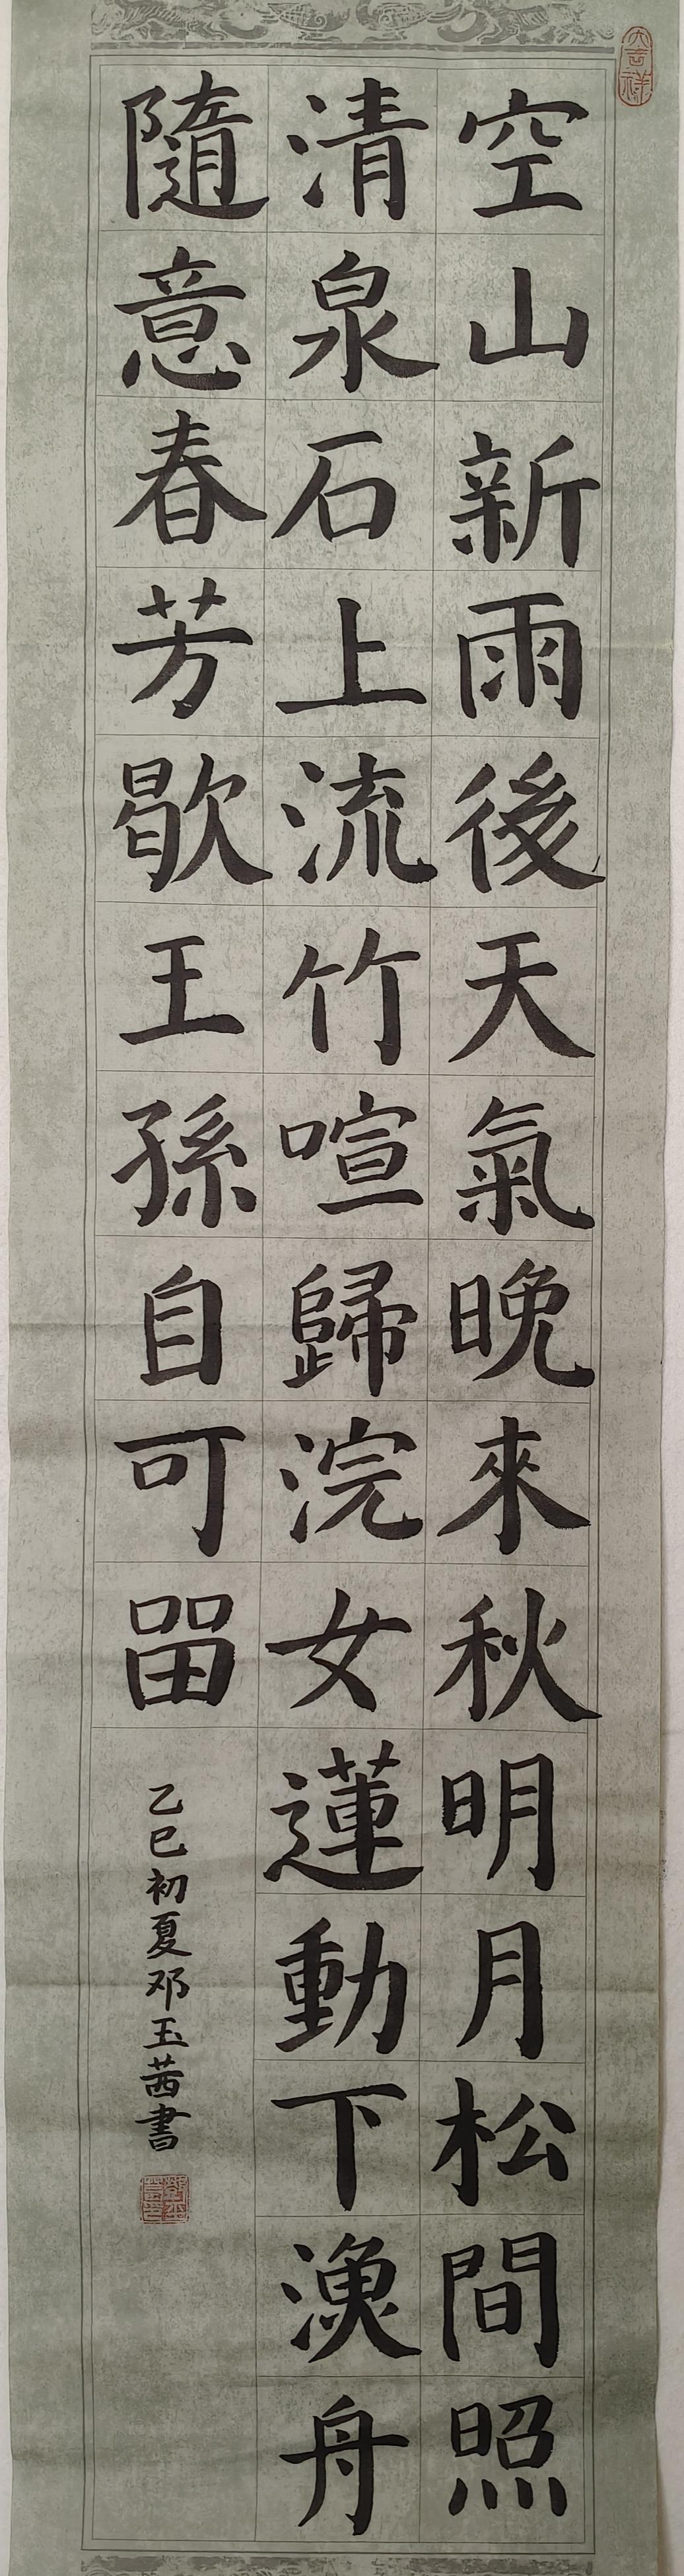 空山新雨後天氣晚來秋明月松間照
清泉石上流竹喧歸浣女蓮動下漁舟
隨意春芳歇王孫自可畱
乙巳初夏邓玉茜書
大吉祥